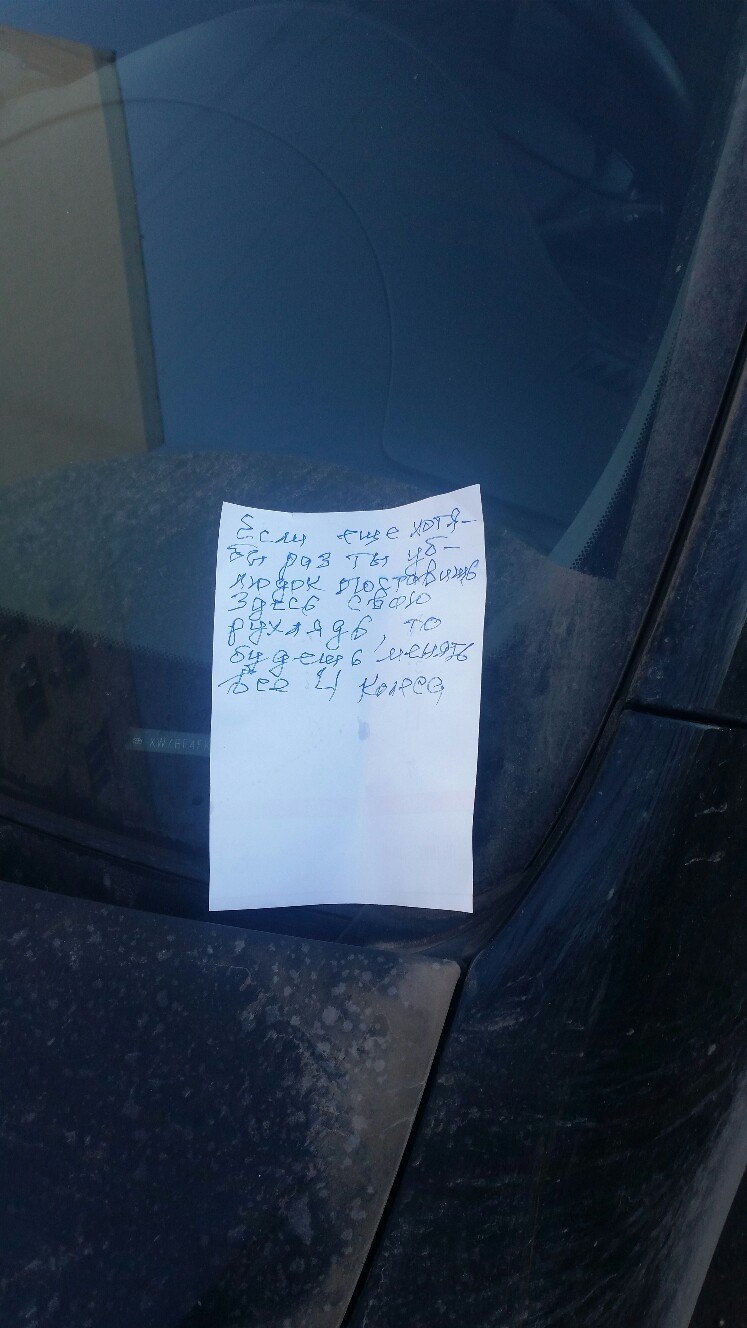 Если еще хотя-
бы раз ты уб-
людок поставишь
здесь свою
рухлядь, то
будешь менять
все 4 колеса